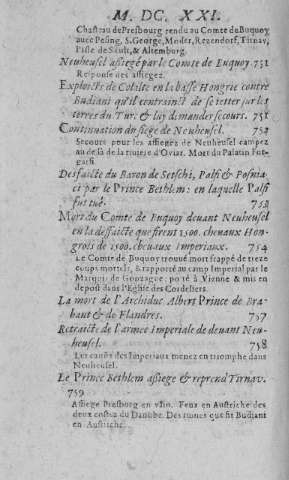 M. DC. XXI.
Chasteau de Presbourg rendu au Comte du Buquoy
auec Pesing, S. George, Moder, Rezendorf, Tirnav,
l'isle de Scult, & Altemburg.
Neuheusel assiegé par le Comte de Buquoy. 751
Responſe des assiegez.
Exploicts de Colalte en la basse Hongrie contre
Budiani qu'il contrainct de se ietter sur les
terres du Tur. & luy demander secours. 751
Continuation du siege de Neuheusel. 752
Secours pour les assiegez de Neuheusel campez
au de là de la riuiere d'Oviar. Mort du Palatin Forgatsi.
Desfaicte du Baron de Setschi, Palfi & Posniaci
par le Prince Bethlem: en laquelle Palfi
fut tué. 753
Mort du Comte de Buquoy deuant Neuheusel
en la desfaicte que firent 1500. cheuaux Hongrois
de 1500. cheuaux Imperiaux. 754
Le Comte de Buquoy trouué mort frappé de treize
coups mortels, & rapporté au camp Imperial par le
Marquis de Gonzague: porté à Vienne & mis en
depost dans l'Eglise des Cordeliers.
La mort de l'Archiduc Albert Prince de Brabant
& de Flandres. 757
Retraicte de l'armee Imperiale de deuant Neuheusel.
758
Les canons des Imperiaux menez en triomphe dans
Neuheusel.
Le Prince Bethlem assiege & reprend Tirnav.
759
Assiege Presbourg en vain. Feux en Austriche des
deux costez du Danube. Des ruines que fit Budiani
en Austriche.